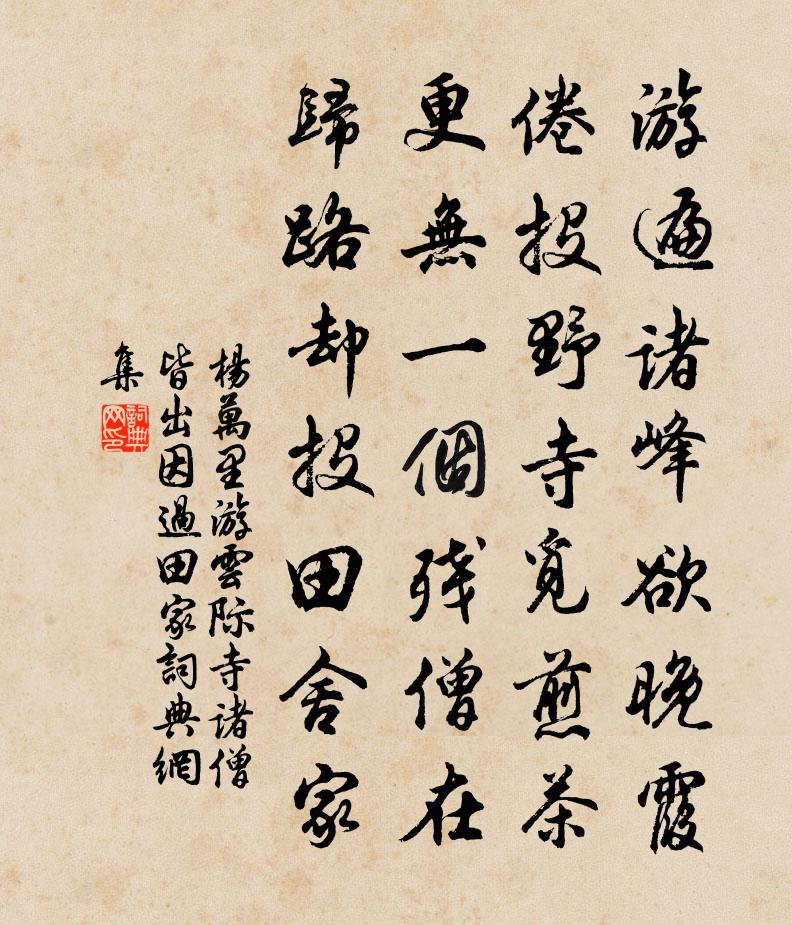 游遍诸峰欲晚霞
倦投野寺觅煎茶
更無一個残僧在
歸路却投田舍家
楊萬里游雲际寺诸僧
皆出因過田家詞典網
集
詞典
网印